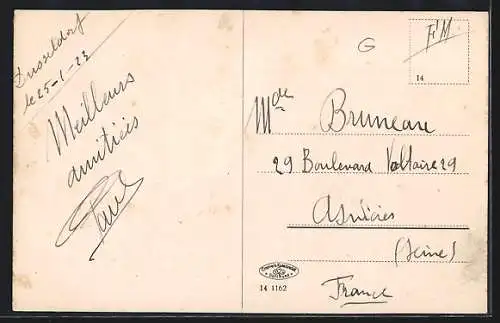 Dusseldorf
le 25-1-23
Meilleurs
amitiés
Paul
G
F.M.
14
Mde Bruneau
29 Boulevard Voltaire 29
Asnières
(Seine)
France
14 1162